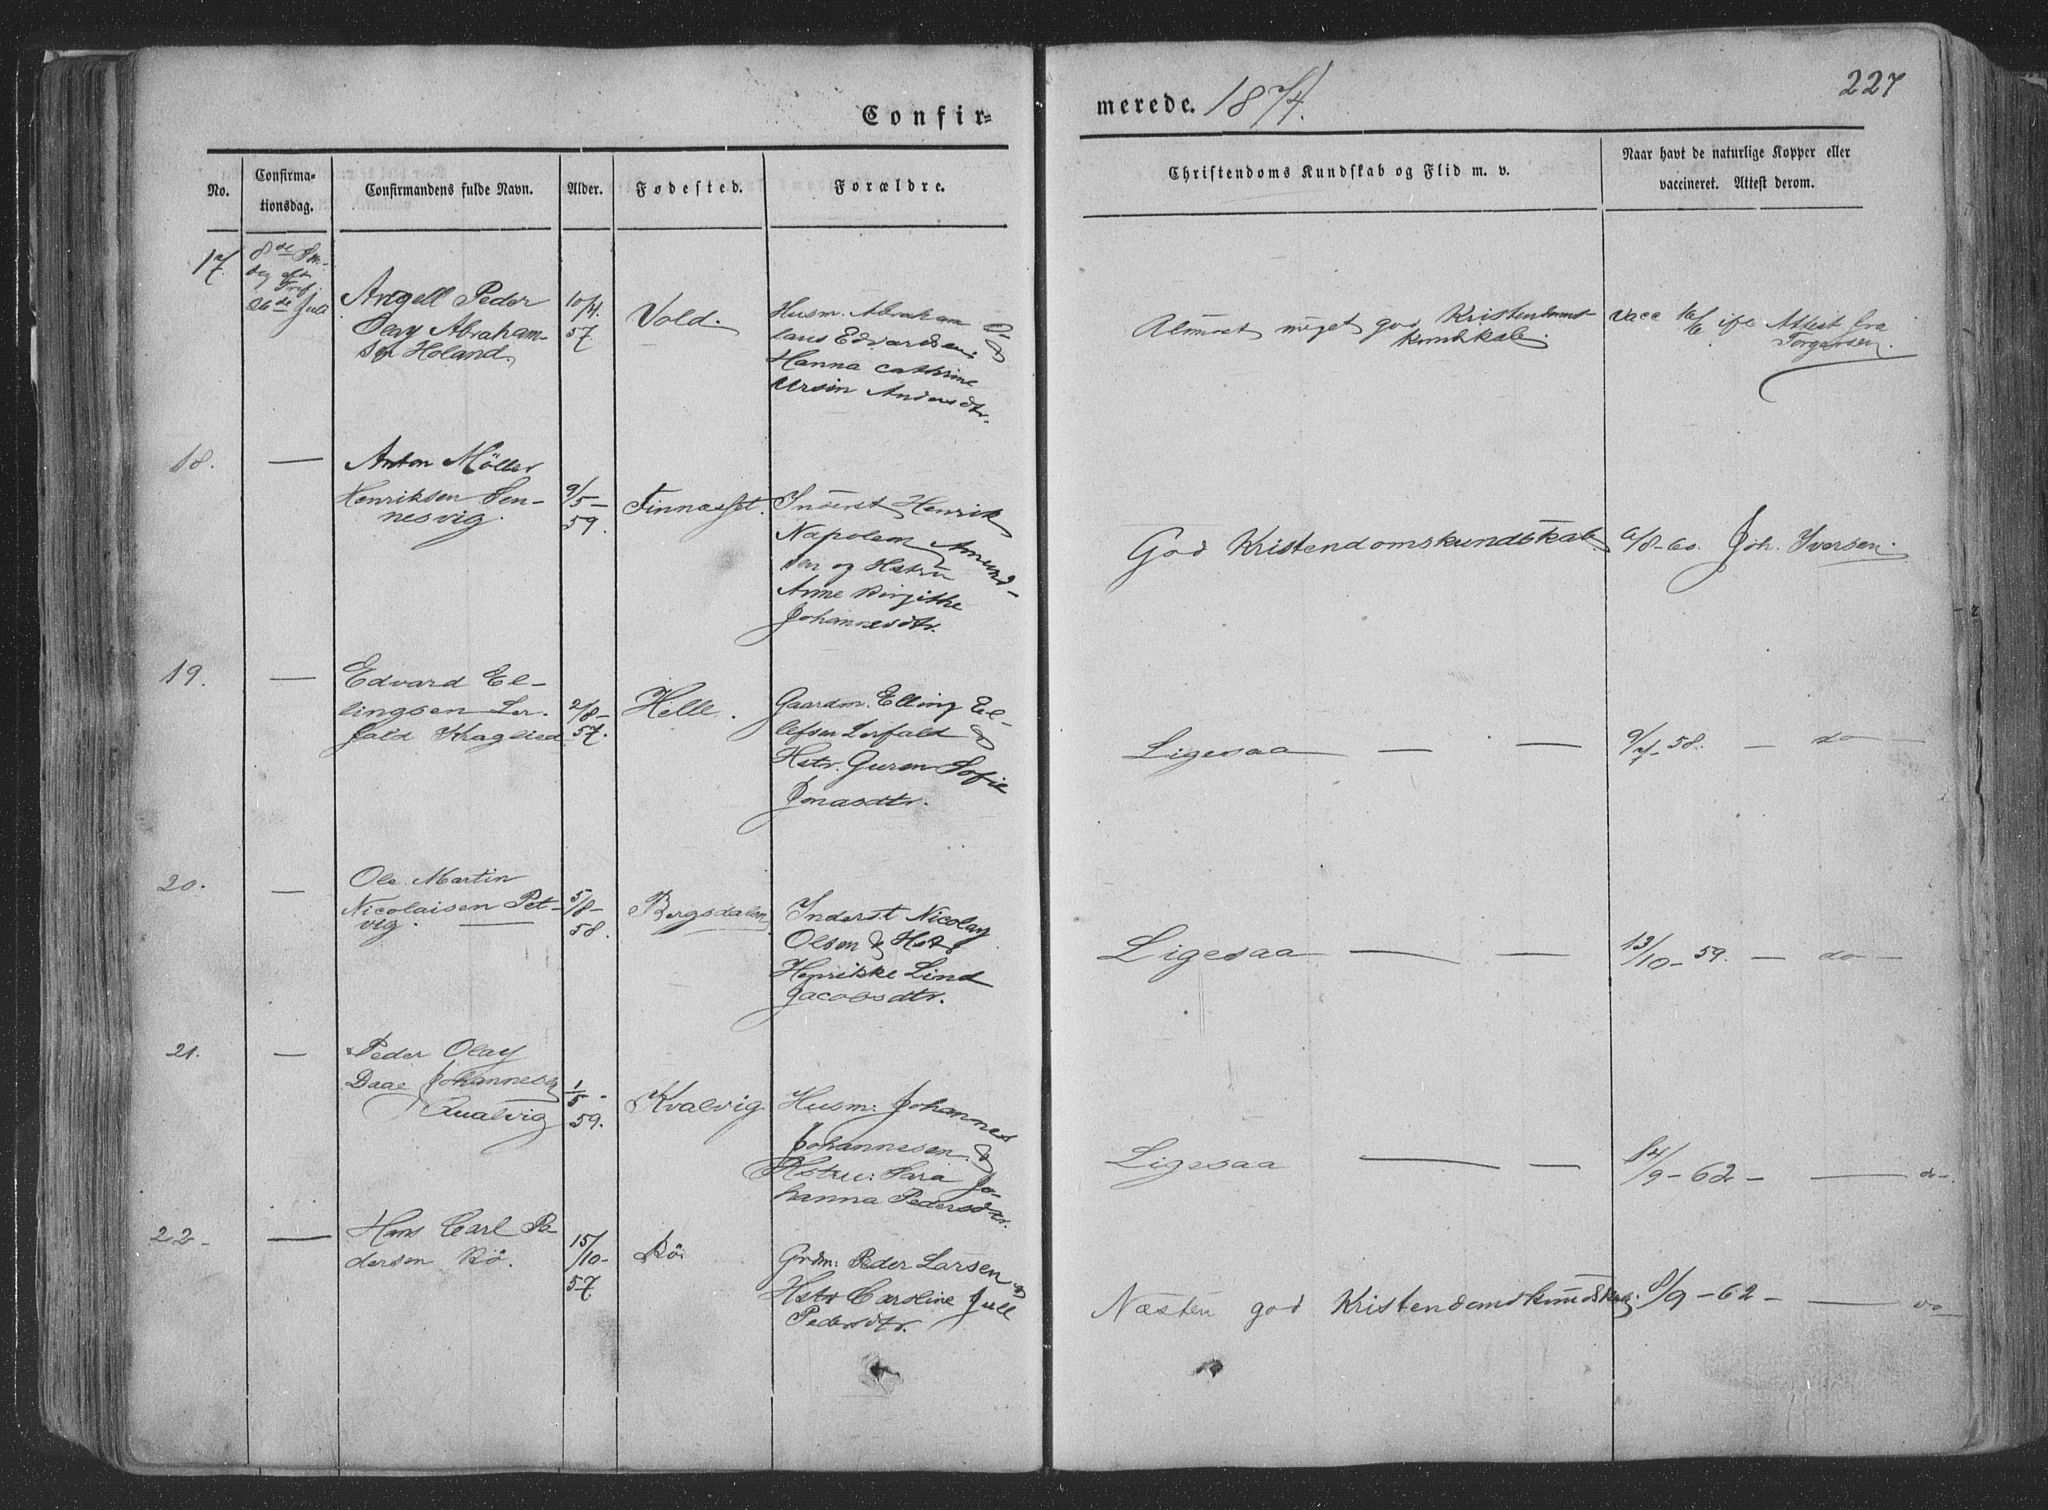 Confir=
merede. 1874.
227
No.
Confirma-
tionsdag.
Confirmandens fulde Navn.
Alder.
Fødested.
Forældre.
Christendoms Kundskab og Flid m. v.
Naar havt de naturlige Kopper eller
vaccineret. Attest derom.
17.
8de
eft
Tref
26de Juli
Angell Peder
Olay Abraham-
sen Holand.
10/4
57.
Vold.
Husm. Abraham
Edvardsen &
Hanna Cathrine
Ursin Andersdtr.
meget god Kristendoms-
kundskab.
vacc Attest fra
Torgersen.
18.
—
Anton Möller
Henriksen Sen-
nesvig.
9/5-
59.
Finnasset.
Inderst Henrik
Napoleon Amund-
sen og Hstru
Anne Birgithe
Johannesdtr.
God Kristendomskundskab
6/8-60. Joh. Iversen.
19.
—
Edvard El-
lingsen Ler-
fald Kraglied
2/8-
57.
Helle.
Gaardm. Elling El-
lefsen Lerfald &
Hstr. Guren Sofie
Jonasdtr.
Ligesaa — —
9/7-58. — do —
20.
—
Ole Martin
Nicolaisen Pet-
vig.
5/8-
58.
Bergsdalen
Inderst Nicolay
Olsen & Hstr
Henrikke Lind
Jacobsdtr.
Ligesaa — —
13/10-59. — do —
21.
—
Peder Olay
Daae Johannesen
Qualvig
1/5-
59.
Kvalvig
Husm: Johannes
Johannesen &
Hstru: Sara Jo-
hanna Pedersdtr.
Ligesaa — —
14/9-62 — — do-.
22-
—
Hans Carl Pe-
dersen Bö.
15/10-
57.
Bö.
Grdm: Peder Larsen &
Hstr Caroline Jull
Pedersdtr.
Næsten god Kristendomskundskab.
8/9-62- — do